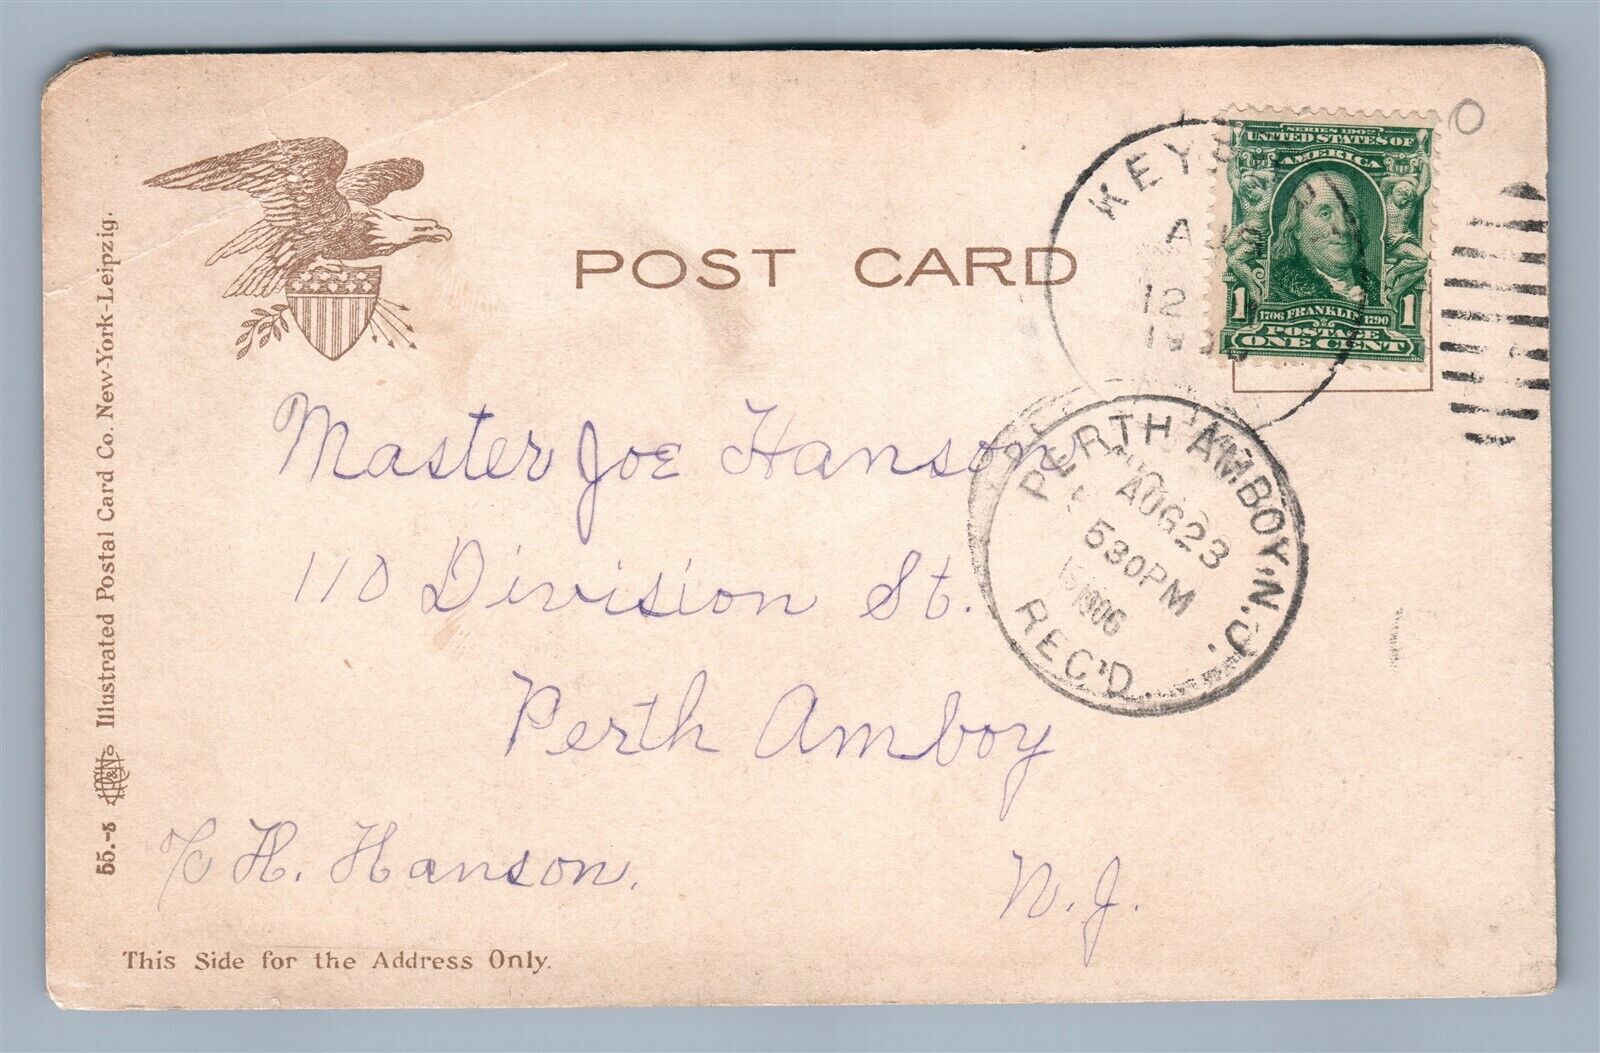 POST CARD
SERIES 1902
UNITED STATES OF
AMERICA
1 1
1706 FRANKLIN 1790
POSTAGE
ONE CENT
12
PERTH AMBOY, N.J.
AUG 23
530 PM
1906
REC'D.
Master Joe Hanson
110 Division St.
Perth Amboy
N.J.
c/o H. Hanson.
This Side for the Address Only.
55.-8 Illustrated Postal Card Co. New-York-Leipzig.